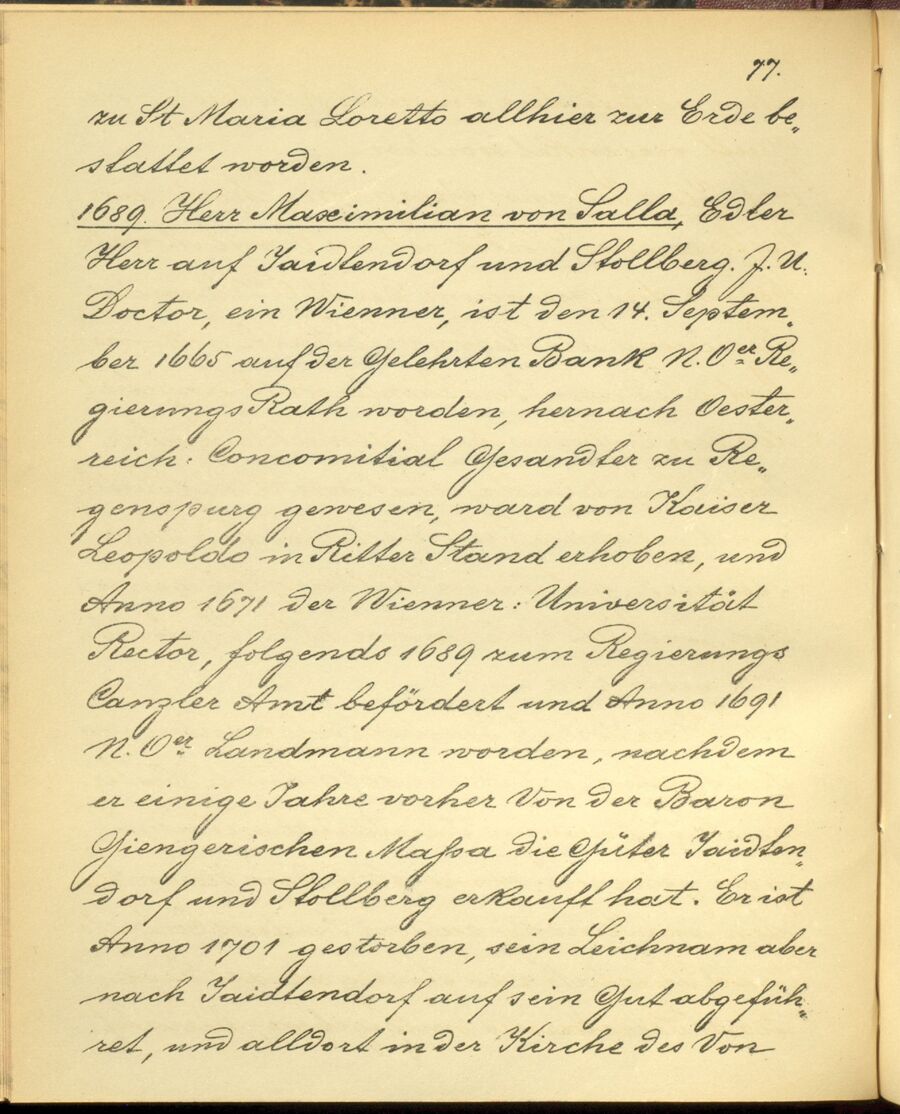 77.
zu St Maria Loretto allhier zur Erde be„
stattet worden.
1689. Herr Maximilian von Salla, Edler
Herr auf Jaidtendorf und Stollberg. J. U.
Doctor, ein Wienner, ist den 14. Septem„
ber 1665 auf der Gelehrten Bank N. Oer Re„
gierungs Rath worden, hernach Oester„
reich: Concomitial Gesandter zu Re„
genspurg gewesen, ward von Kaiser
Leopoldo in Ritter Stand erhoben, und
Anno 1671 der Wienner: Universität
Rector, folgends 1689 zum Regierungs
Canzler Amt befördert und Anno 1691
N. Oer Landmann worden, nachdem
er einige Jahre vorher Von der Baron
Giengerischen Maſsa die Güter Jaidten„
dorf und Stollberg erkauft hat. Er ist
Anno 1701 gestorben, sein Leichnam aber
nach Jaidtendorf auf sein Gut abgefüh„
ret, und alldort in der Kirche des Von